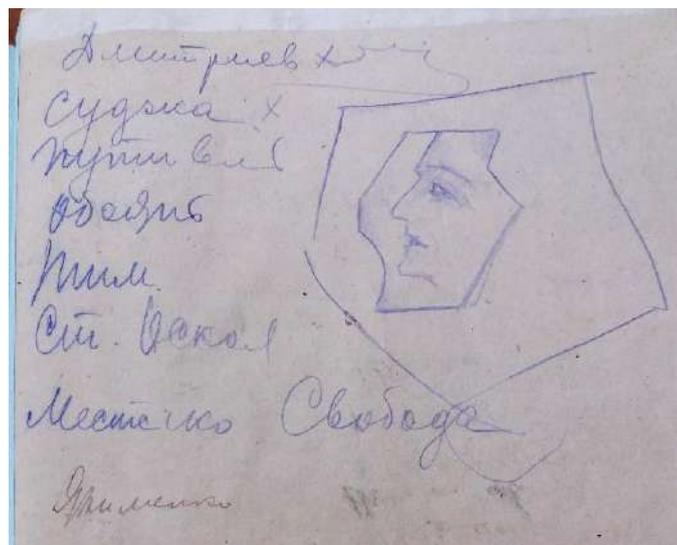 Дмитриев х
Суджа х
Путивль
Обоянь
Тим.
Ст. Оскол
Местечко Свобода
Ярименко